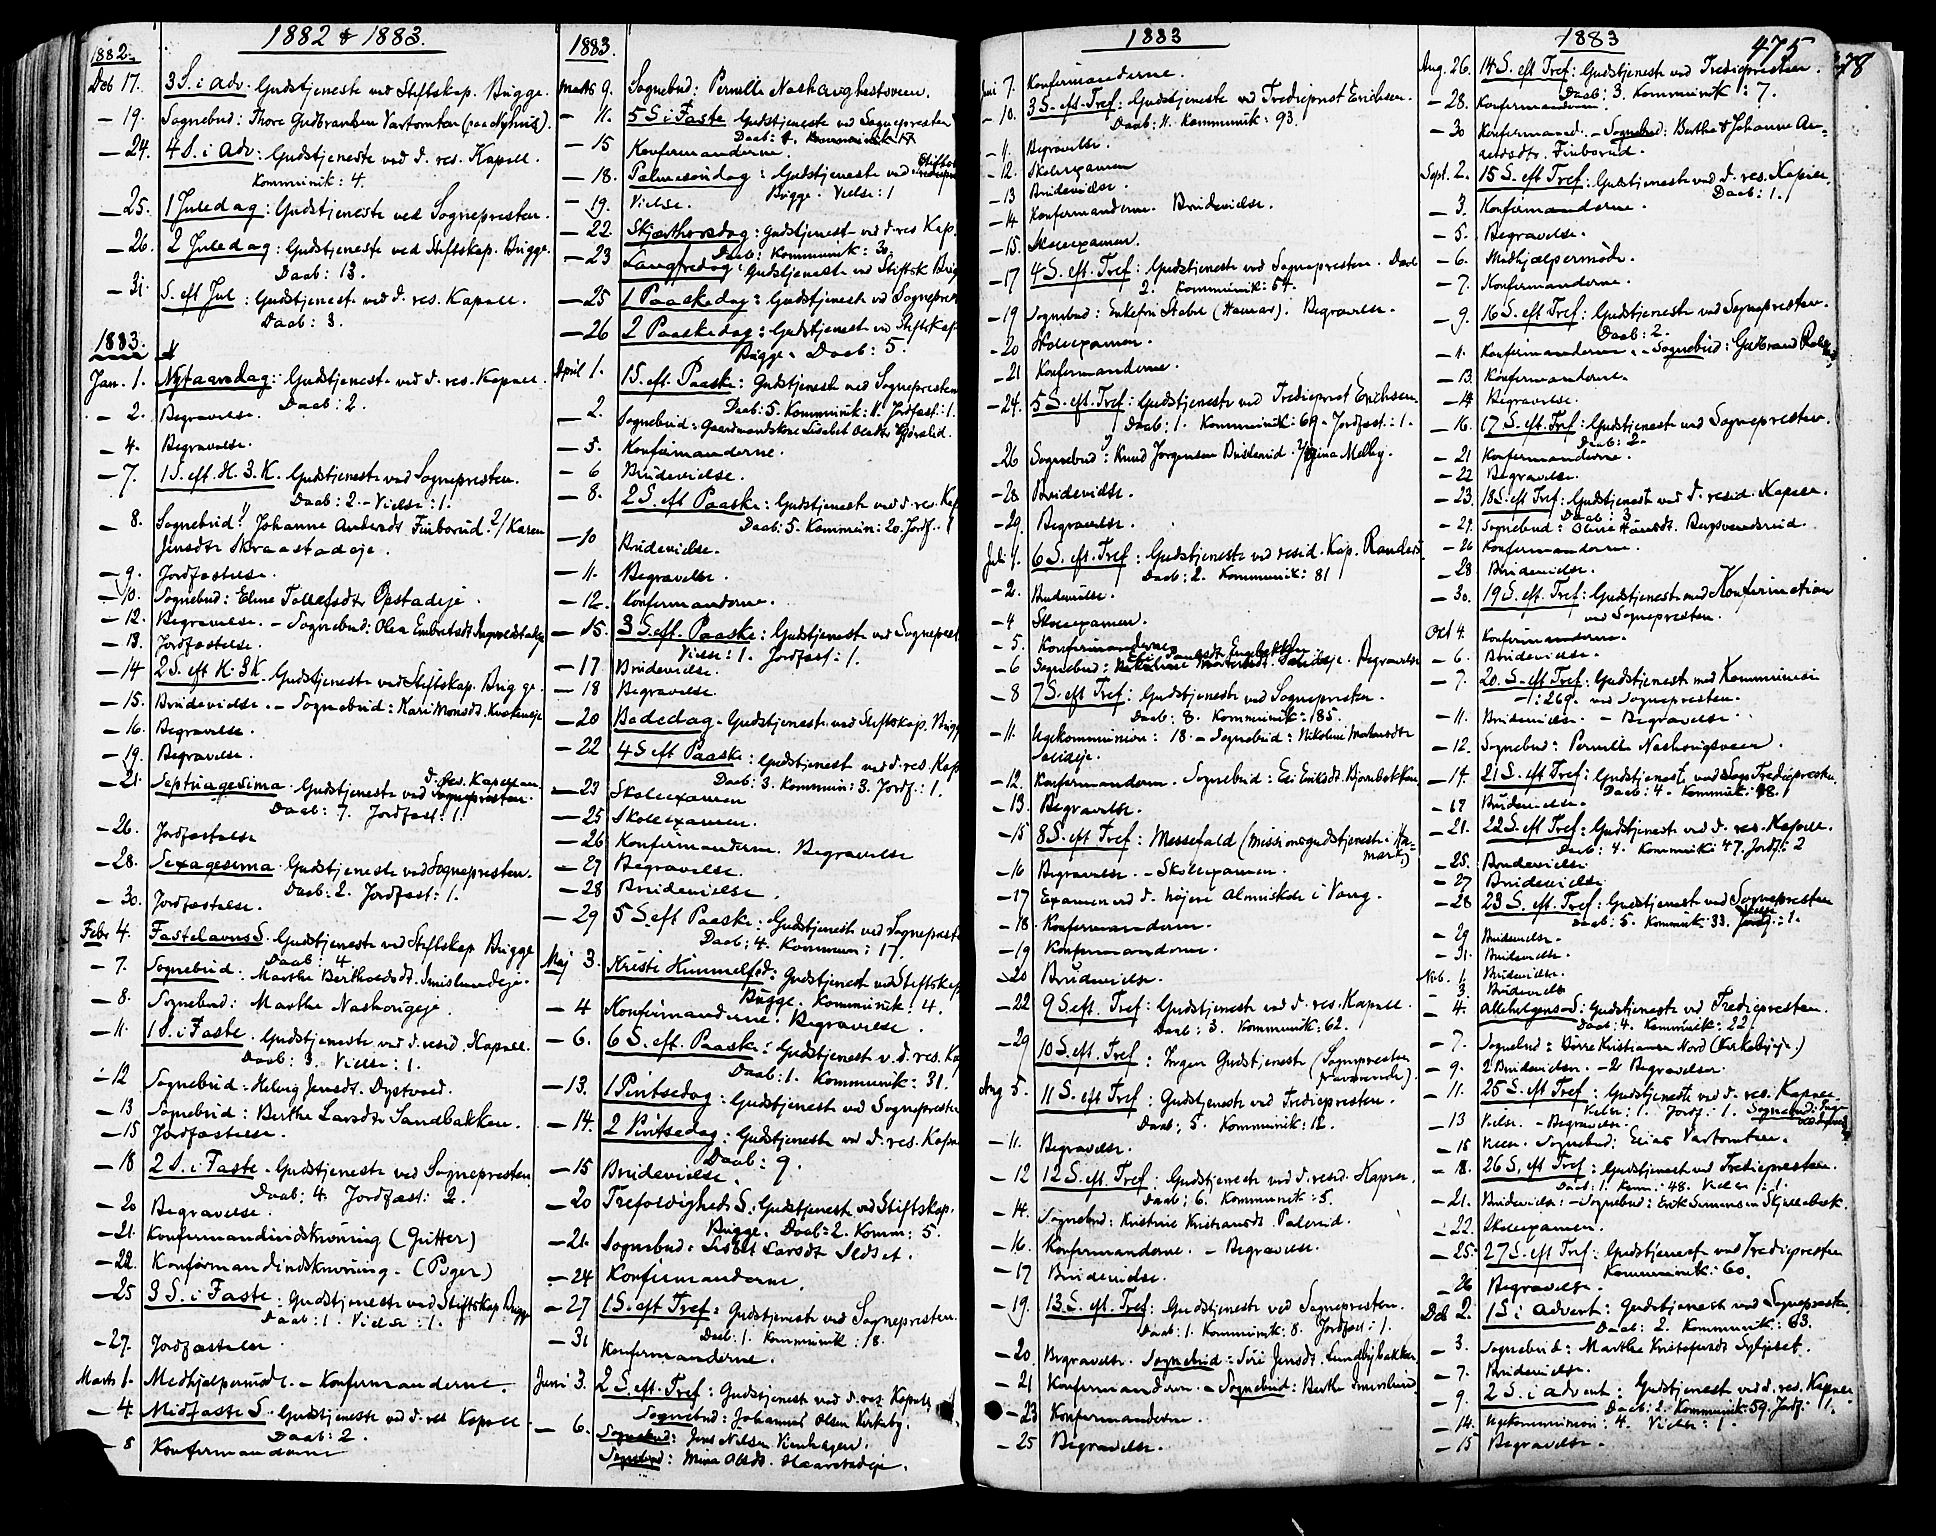 1882 & 1883.
1882.
Deb 17. 3 S. i Adv. Gudstjeneste ved Stiftskap. Bugge.
— 19. Sognebud: Thore Gudbrandsen
— 24. 4 S. i Adv: Gudstjeneste ved d. res. Kapell.
Kommunik: 4.
— 25. 1 Juledag: Gudstjeneste ved Sognepresten.
— 26. 2 Juledag: Gudstjeneste ved Stiftskap. Bugge.
Daab: 13.
— 31. S. eft Jul: Gudstjenest. ved d. res. Kapell.
Daab: 3.
1883.
Jan. 1. Nytaarsdag: Gudstjenest. ved d. res. Kapell.
Daab: 2.
— 2. Begravelse.
— 4. Begravelse.
— 7. 1 S. eft. H. 3. K. Gudstjeneste ved Sognepresten.
Daab: 2. – Vielse: 1.
— 8. Sognebud 1/ Johanne Andersdt Finborud 2/ Karen
Jensdtr Skraastadeje.
— 9. Jordfæstelse.
— 10. Sognebud: Eline Tollefsdtr Opstadeje.
— 12. Begravelse. – Sognebud: Olea Embretsdt
— 13. Jordfæstelse.
— 14 2 S. eft H. 3 K. Gudstjeneste ved Stiftskap. Bugge.
— 15. Brudevielse. – Sognebud: Kari Monsdt.
— 16. Begravelse.
— 19. Begravelse.
— 21. Septuagesima. Gudstjeneste ved d. res. Kapellan.
Daab: 7. Jordfæst: 1.
— 26. Jordfæstelse
— 28. Sexagesima. Gudstjeneste ved Sognepresten.
Daab: 2. Jordfæst: 1.
— 30. Jordfæstelse.
Febr 4. Fastelavns S. Gudstjeneste ved Stiftskap Bugge
Daab: 4
— 7. Sognebud. Marthe Bertholdsdt.
— 8. Sognebud: Marthe
— 11. 1 S. i Faste. Gudstjeneste ved d. resid. Kapell.
Daab: 3. Vielse: 1.
— 12 Sognebud. Helvig Jensdt. Dystvold.
— 13 Sognebud: Berthe Larsdtr Sandbakken.
— 15 Jordfæstelse.
— 18 2 S. i Faste. Gudstjeneste ved Sognepresten.
Daab: 4. Jordfæst: 2.
— 20 Begravelse.
— 21. Konfirmandindskrivning (Gutter)
— 22. Konfirmandindskrivning. (Piger)
— 25 3 S. i Faste: Gudstjeneste ved Stiftskap Bugge
Daab: 1. Vielse: 1.
— 27. Jordfæstelse
Marts 1. Medhjælpermøde. – Konfirmanderne.
— 4. Midfaste S. Gudstjeneste ved d. res Kapell
Daab: 2.
— 8 Konfirmanderne
1883.
Marts 9. Sognebud: Pernille
— 11. 5 S i Faste Gudstjeneste ved Sognepresten
Daab: 4. Kommunik 17
— 15 Konfirmanderne.
— 18. Palmesøndag: Gudstjeneste ved Stiftskap
Bugge. Vielse: 1
— 19. Vielse.
— 22. Skjærthorsdag: Gudstjeneste ved d. res Kap.
Daab: Kommunik: 30.
— 23 Langfredag: Gudstjeneste ved Stiftsk Bug
— 25 1 Paaskedag: Gudstjenest ved Sogneprest
— 26 2 Paaskedag: Gudstjenest ved Stiftskap
Bugge. Daab: 5.
April 1. 1 S. eft. Paaske: Gudstjenest ved Sognepresten
Daab: 5. Kommunik: 11. Jordfæst: 1.
— 2. Sognebud: Gaardmandskone Lisebet Olsdtr
— 5. Konfirmanderne.
— 6 Brudevielse.
— 8. 2 S. eft Paaske: Gudstjeneste ved d. res. Kap
Daab: 5. Kommun: 20. Jordf.: 1
— 10 Brudevielse.
— 11. Begravelse.
— 12. Konfirmanderne.
— 15. 3 S. eft. Paaske: Gudstjeneste ved Sogneprest
Vielse: 1. Jordfæst: 1.
— 17. Brudevielse.
— 18 Begravelse.
— 20 Bededag. Gudstjeneste ved Stiftskap. Bugg
— 22 4 S eft Paaske: Gudstjeneste ved d. res. Kap
Daab: 3. Kommun: 3. Jordf: 1.
— 23 Skoleexamen
— 25 Skoleexamen.
— 26 Konfirmanderne. Begravelse
— 27 Begravelse.
— 28 Brudevielse
— 29 5 S eft Paaske: Gudstjeneste ved Sogneprest
Daab: 4. Kommun: 17.
Maj 3. Kristi Himmelf.d: Gudstjenest ved Stiftskap
Bugge. Kommunik: 4.
— 4 Konfirmanderne. Begravelse.
— 6. 6 S. eft. Paaske: Gudstjenest v. d. res. Ka
Daab: 1. Kommunik: 31.
— 13. 1 Pintsedag: Gudstjeneste ved Sogneprest
— 14. 2 Pintsedag: Gudstjeneste ved d. res. Kapel
Daab: 9.
— 15 Brudevielse.
— 20 Trefoldigheds S: Gudstjeneste ved Stiftskap.
Bugge. Daab: 2. Komm: 5.
— 21. Sognebud: Lisbet Larsdt
— 24 Konfirmanderne.
— 27 1 S. eft Tref: Gudstjeneste ved Sognepresten.
Daab: 1. Kommunik: 18.
— 31 Konfirmanderne.
Juni 3. 2 S. eft. Tref: Gudstjenest ved d. res Kapell
Sognebud: Johannes Olsen Kirkeby.
— 6. Sognebud: Jens Nilsen
Sognebud: Mina Olsdt.
1883
Juni 7. Konfirmanderne.
— 10. 3 S. eft. Tref: Gudstjeneste ved Tredieprest Erichsen.
Daab: 11. Kommunik: 93.
— 11. Begravelse.
— 12. Skoleexamen
— 13 Brudevielse.
— 14 Konfirmanderne. Brudevielse.
— 15. Skoleexamen.
— 17 4 S. eft. Tref: Gudstjeneste ved Sognepresten. Daab
2. Kommunik: 54.
— 19 Sognebud: Enkefru Stabel (Hamar). Begravelse.
— 20 Skoleexamen.
— 21 Konfirmanderne.
— 24. 5 S. eft. Tref: Gudstjeneste ved Tredieprest Erichsen
Daab: 1. Kommunik: 69. Jordfæst: 1.
— 26 Sognebud 1/ Knud Jørgensen 2/ Melby.
— 28 Brudevielse.
— 29. Begravelse.
Juli 1. 6 S. eft. Tref: Gudstjeneste ved resid. Kap. Randers
Daab: 2. Kommunik: 81
— 2. Brudevielse.
— 4 Skoleexamen.
— 5. Konfirmanderne
— 6 Sognebud: Begravelse
— 8 7 S. eft Tref: Gudstjeneste ved Sognepresten.
Daab: 8. Kommunik: 185.
— 11. Ugekommunion: 18. – Sognebud: Nikoline
— 12. Konfirmanderne. Sognebud: Eli Eriksdt.
— 13. Begravelse.
— 15 8 S. eft Tref: Messefald (Missionsgudstjeneste i Ha-
mar.)
— 16 Begravelse. – Skoleexamen.
— 17 Examen ved d. højere Almuskole i Vang.
— 18. Konfirmanderne.
— 19 Konfirmanderne.
— 20 Brudevielse.
— 22 9 S. eft. Tref: Gudstjeneste ved d. res. Kapell.
Daab: 3. Kommunik: 62.
— 29 10 S. eft. Tref: Ingen Gudstjeneste (Sognepresten
fraværende).
Aug 5. 11 S. eft Tref: Gudstjeneste ved Tredjepresten.
Daab: 5. Kommunik: 12.
— 11. Begravelse.
— 12 12 S. eft. Tref: Gudstjeneste ved d. resid. Kapell.
Daab: 6. Kommunik: 5.
— 14. Sognebud: Kristine Kristiansdt.
— 16. Konfirmanderne. – Begravelse.
— 17 Brudevielse.
— 19. 13 S. eft. Tref: Gudstjeneste ved Sognepresten.
Daab: 1. Kommunik: 8. Jordfæst: 1.
— 20. Begravelse. Sognebud: Siri Jensdt. Lundbybakken
— 21 Konfirmanderne. – Sognebud: Berthe
— 23 Konfirmanderne.
— 25 Begravelse.
1883
475
478
Aug. 26. 14 S. eft Tref: Gudstjeneste ved Tredjepresten.
Daab: 3. Kommunik: 7.
— 28. Konfirmanderne.
— 30 Konfirmand. – Sognebud: Berthe & Johanne An-
dersdtr. Finborud.
Sept. 2. 15 S. eft Tref: Gudstjeneste ved d. res. Kapell.
Daab: 1.
— 3. Konfirmanderne.
— 5. Begravelse.
— 6. Medhjælpermøde.
— 7. Konfirmanderne.
— 9. 16 S. eft Tref: Gudstjeneste ved Sognepresten.
Daab: 2.
— 11. Konfirmanderne. – Sognebud: Gudbrand
— 13. Konfirmanderne.
— 14 Begravelse.
— 16. 17 S. eft. Tref: Gudstjeneste ved Sognepresten.
Daab: 2.
— 21 Konfirmanderne.
— 22 Begravelse.
— 23. 18 S. eft Tref: Gudstjenest ved d. resid. Kapell.
Daab: 3.
— Sognebud: Oline
— 26 Konfirmanderne.
— 28 Brudevielse.
— 30. 19 S. eft. Tref: Gudstjeneste med Konfirmation
ved Sognepresten.
Okt 4. Konfirmanderne.
— 6. Brudevielse.
— 7. 20. S. eft Tref: Gudstjenest med Kommunion
: 269. ved Sognepresten.
— 11. Brudevielse. – Begravelse.
— 12. Sognebud: Pernille
— 14. 21 S. eft Tref: Gudstjenest ved Tredjeprest
Daab: 4. Kommunik: 98.
— 17 Brudevielse.
— 21. 22 S. eft Tref: Gudstjeneste ved d. res. Kapell.
Daab: 4. Kommunik: 47. Jordf: 2
— 25. Brudevielse
— 27 Brudevielse
— 28 23 S. eft. Tref: Gudstjenest ved Sognepresten
Daab: 5. Kommunik: 33. Vielse: 1.
— 29 Brudevielse.
— 31. Brudevielse.
Nvb. 1. Brudevielse.
— 3. Brudevielse
— 4. Allehelgens S: Gudstjeneste ved Tredjepresten.
Daab: 4. Kommunik: 22.
— 7. Sognebud: Børre Kristiansen Nord (Kirkebyeje.)
— 9. 2 Brudevielser. – 2 Begravelser.
— 11. 25 S. eft Tref: Gudstjeneste ved d. res. Kapell.
Vielse: 1. Jordf: 1. Sognebud:
— 13 Vielse. – Begravelse.
— 15 Vielse. Sognebud: Elias
— 18. 26 S. eft Tref: Gudstjenest ved Tredjepresten.
Daab: 1. Kom: 48. Vielse: 1.
— 21. Brudevielse. – Sognebud: Erik Simensen
— 22. Skoleexamen.
— 25. 27 S. eft Tref: Gudstjenest ved Tredjepresten
Kommunik: 60.
— 26 Begravelse.
Deb 2. 1 S. i Advent: Gudstjenest ved Sogneprest
Daab: 2. Kommunik: 63.
— 3. Sognebud: Marthe Kristofersdt
— 7. Brudevielse.
— 9. 2 S. i Advent: Gudstjenest ved d. res. Kapell.
Daab: 2. Kommunik: 59. Jordf: 1.
— 14. Ugekommunion: 4. Vielse: 1.
— 15 Begravelse.